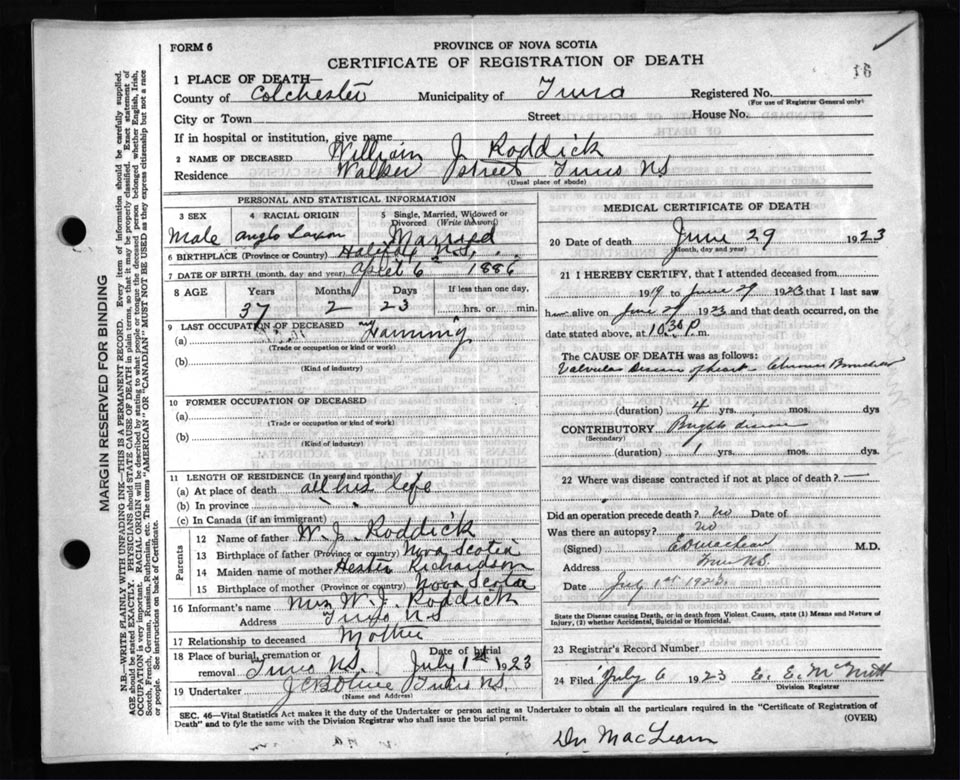 FORM 6
PROVINCE OF NOVA SCOTIA
CERTIFICATE OF REGISTRATION OF DEATH
1 PLACE OF DEATH—
County of Colchester Municipality of Truro Registered No.
(For use of Registrar General only)
City or Town Street House No.
If in hospital or institution, give name
2 NAME OF DECEASED William J. Roddick
Residence Walker Street Truro N.S.
(Usual place of abode)
PERSONAL AND STATISTICAL INFORMATION
3 SEX 4 RACIAL ORIGIN 5 Single, Married, Widowed or Divorced (Write the word)
Male Anglo Saxon Married
6 BIRTHPLACE (Province or Country) Halifax N.S.
7 DATE OF BIRTH (month, day and year) April 6 1886
8 AGE Years Months Days If less than one day,
37 2 23 hrs. or min.
9 LAST OCCUPATION OF DECEASED
(a)
(Trade or occupation or kind or work)
(b)
(Kind of industry)
10 FORMER OCCUPATION OF DECEASED
(a)
(Trade or occupation or kind or work)
(b)
(Kind of industry)
11 LENGTH OF RESIDENCE (In years and months)
(a) At place of death all his life
(b) In province
(c) In Canada (if an immigrant)
Parents
12 Name of father W. J. Roddick
13 Birthplace of father (Province or country) Nova Scotia
14 Maiden name of mother Hester Richardson
15 Birthplace of mother (Province or country) Nova Scotia
16 Informant's name Mrs W. J. Roddick
Address Truro NS
17 Relationship to deceased Mother
18 Place of burial, cremation or removal Truro N.S. Date of burial July 1st 1923
19 Undertaker Truro N.S.
(Name and Address)
MEDICAL CERTIFICATE OF DEATH
20 Date of death June 29 1923
(Month, day and year)
21 I HEREBY CERTIFY, that I attended deceased from
1919 to June 29 1923 that I last saw
him alive on June 29 1923 and that death occurred, on the
date stated above, at 10.30 P. m.
The CAUSE OF DEATH was as follows:
Valvular Disease of heart Chronic
(duration) 4 yrs. mos. dys
CONTRIBUTORY Brights disease
(Secondary)
(duration) 1 yrs. mos. dys
22 Where was disease contracted if not at place of death?
Did an operation precede death? no Date of
Was there an autopsy? no
(Signed) E D MacLean M.D.
Address Truro N.S.
Date July 1st 1923
State the Disease causing Death, or in death from Violent Causes, state (1) Means and Nature of Injury, (2) whether Accidental, Suicidal or Homicidal.
23 Registrar's Record Number
24 Filed July 6 1923 E. E. McNutt
Division Registrar
SEC. 46—Vital Statistics Act makes it the duty of the Undertaker or person acting as Undertaker to obtain all the particulars required in the "Certificate of Registration of
Death" and to fyle the same with the Division Registrar who shall issue the burial permit. (OVER)
Dr. MacLean
MARGIN RESERVED FOR BINDING
N.B.—WRITE PLAINLY WITH UNFADING INK—THIS IS A PERMANENT RECORD. Every item of information should be carefully supplied.
AGE should be stated EXACTLY. PHYSICIANS should STATE CAUSE OF DEATH in plain terms, so that it may be properly classified. Exact statement of
OCCUPATION is very important. RACIAL ORIGIN will be described by stating to what people or tongue the deceased person belonged whether English, Irish,
Scotch, French, German, Russian, Ruthenian, etc. The terms "AMERICAN" OR "CANADIAN" MUST NOT BE USED as they express citizenship but not a race
or people. See instructions on back of Certificate.